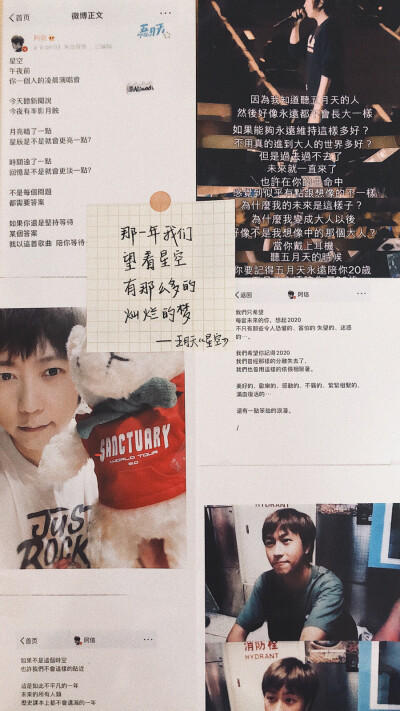 首页
微博正文
阿信
五月天
星空
午夜前
你一個人的凌晨演唱會
今天聽新聞說
今夜有半影月蝕
月亮暗了一點
星辰是不是就會更亮一點?
時間遠了一點
回憶是不是就會更淡一點?
不是每個問題
都需要答案
如果你還是堅持等待
某個答案
我以這首歌曲 陪你等待
因為我知道聽五月天的人
然後好像永遠都不會長大一樣
如果能夠永遠維持這樣多好?
不用真的進到大人的世界多好?
但是過去過不去了
未來就一直來了
也許在你的生命中
感覺到似乎有點跟想像的不一樣
為什麼我的未來是這樣子?
為什麼我變成大人以後
好像不是我想像中的那個大人?
當你戴上耳機
聽五月天的時候
你要記得五月天永遠陪你20歲
那一年我们
望着星空
有那么多的
灿烂的梦
——五月天《星空》
返回
阿信
我們只希望
每當未來的你,想起2020
不只有那些令人恐懼的、
我們希望你記得2020
我們曾經那樣的分離失去了,
美好的、歡樂的、感動的、不羈的、緊緊相繫的、
滿血復活的⋯
還有一點笨拙的浪漫。
/
SANCTUARY
WORLD TOUR
6.0
JUST
ROCK
HYDRANT
消防栓
HYDRANT
首页
阿信
如果不是這個時空
也許我們不會這樣的貼近
這是如此不平凡的一年
未來的所有人類
歷史課本上都不會遺漏的一年